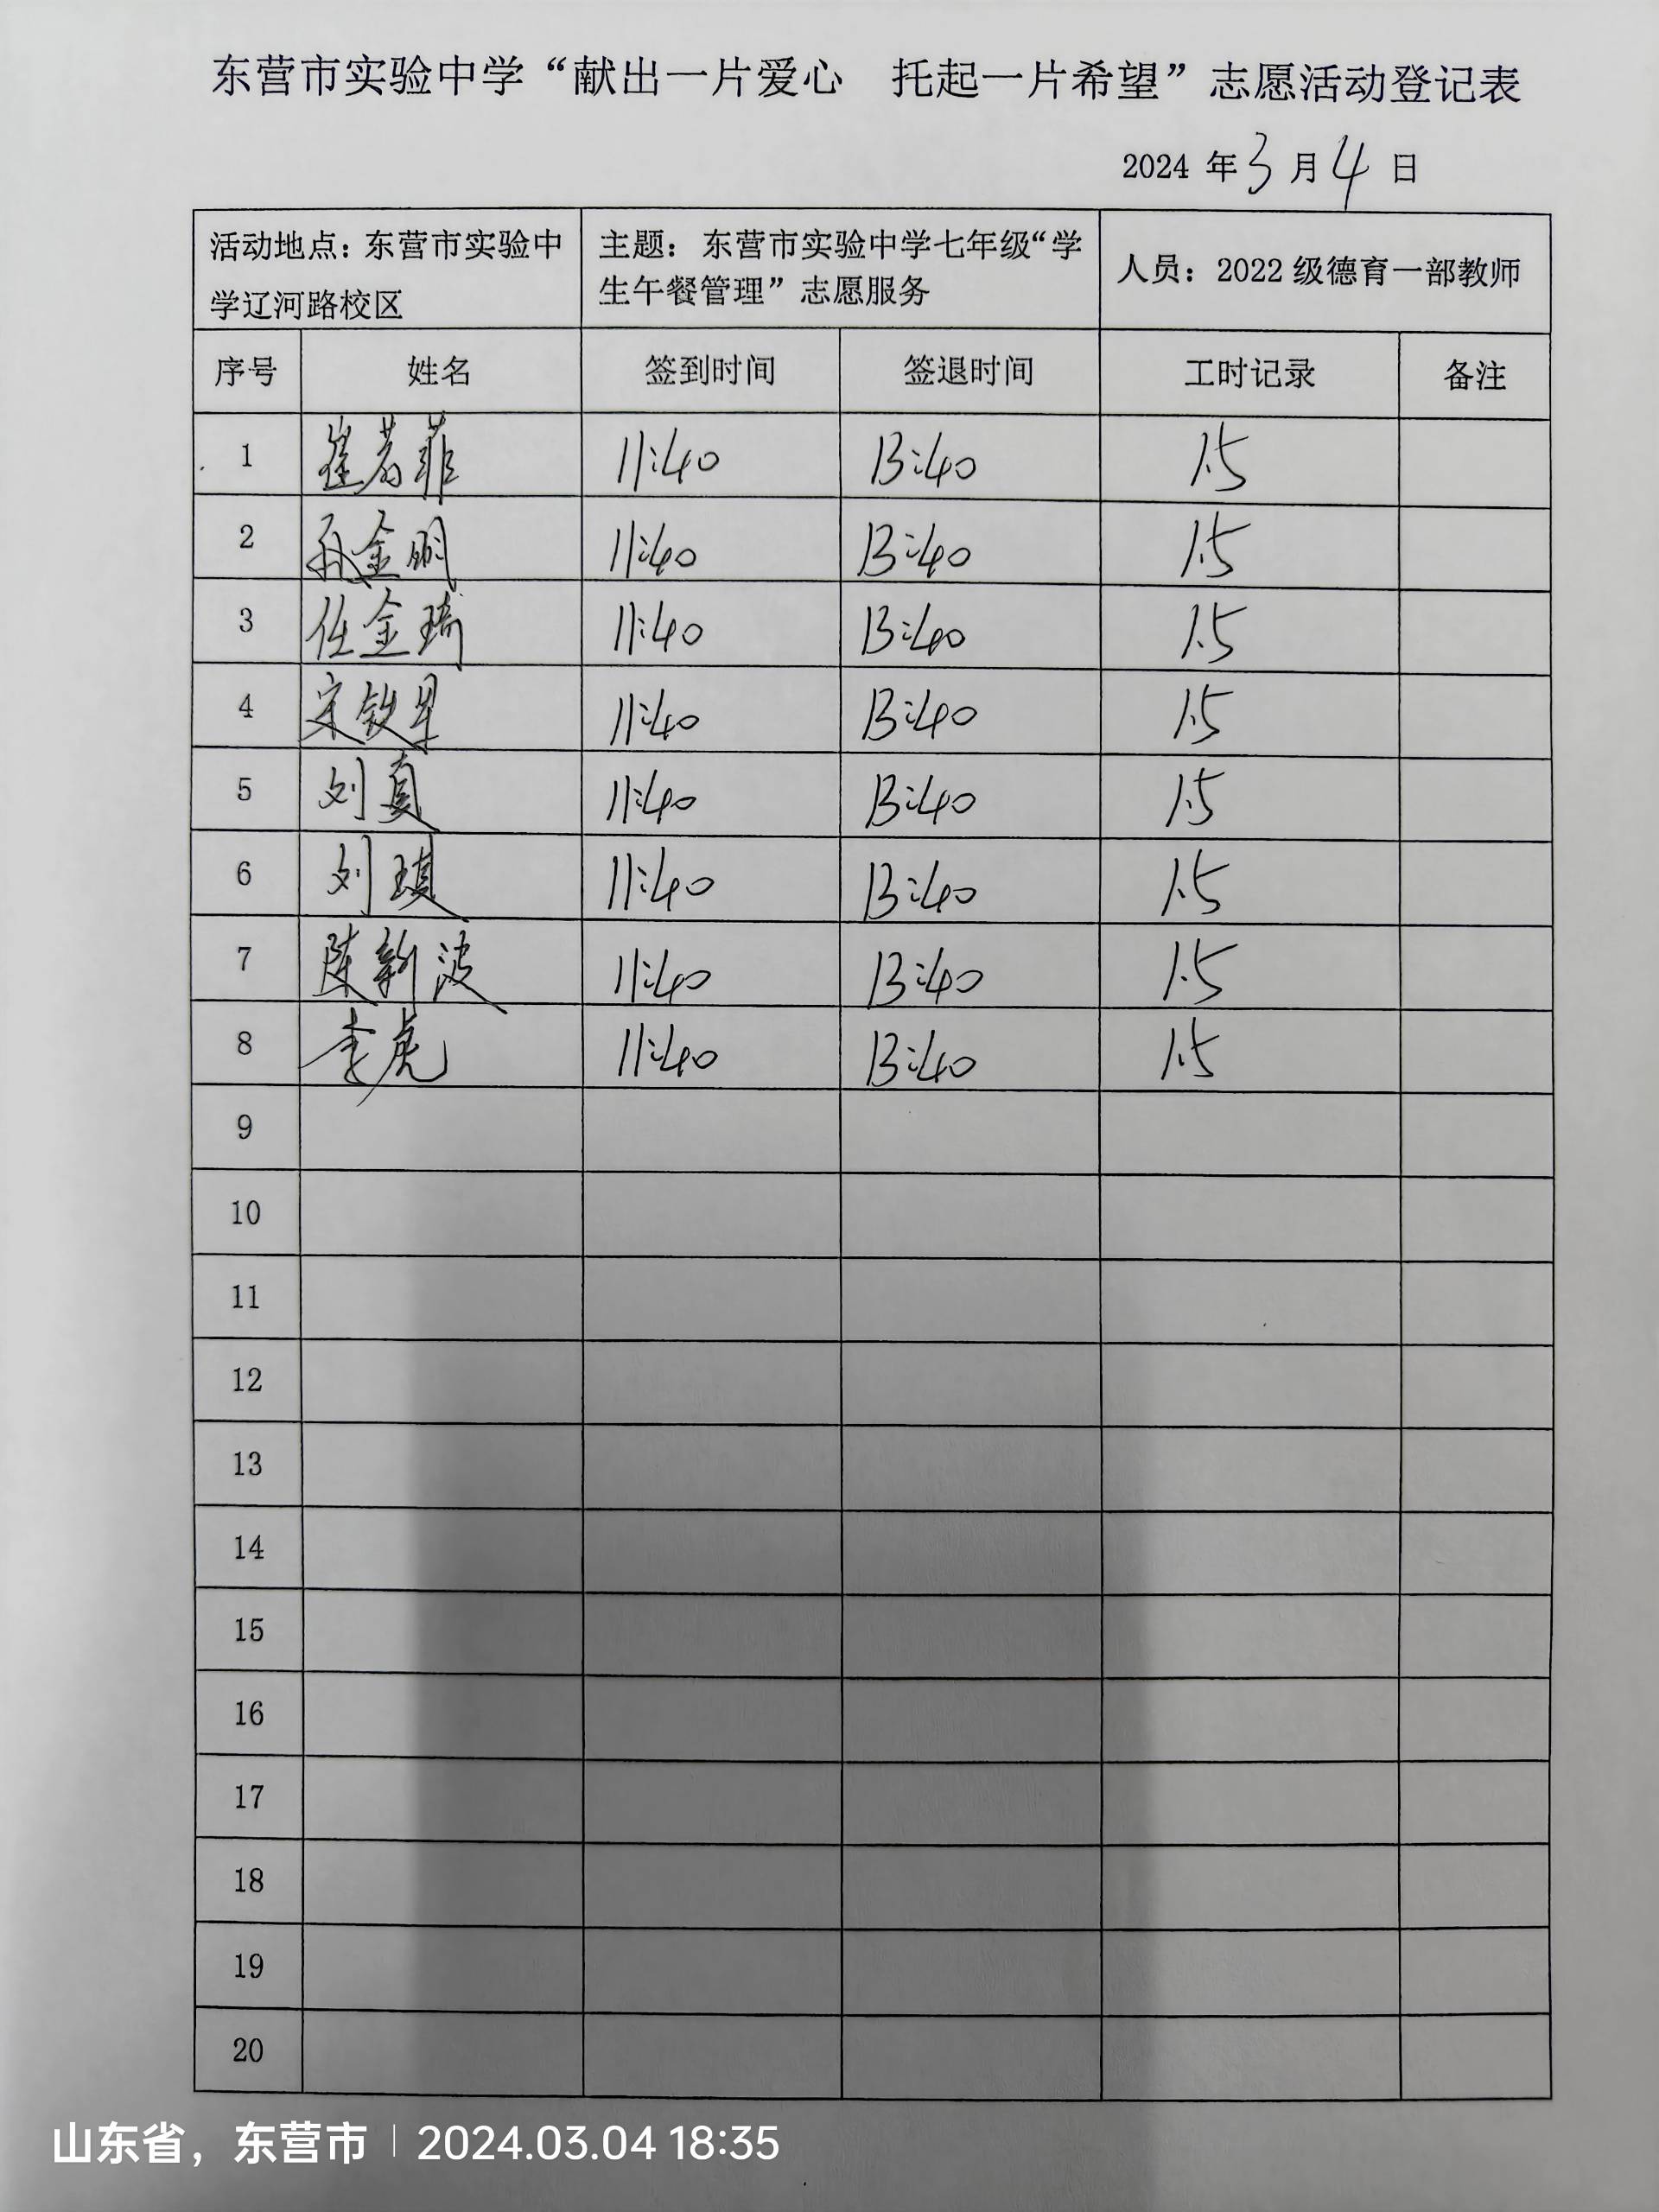 东营市实验中学“献出一片爱心 托起一片希望”志愿活动登记表
2024 年 3 月 4 日
活动地点：东营市实验中
学辽河路校区
主题：东营市实验中学七年级“学
生午餐管理”志愿服务
人员：2022 级德育一部教师
序号 姓名 签到时间 签退时间 工时记录 备注
1 崔若菲 11:40 13:40 1.5
2 孙金明 11:40 13:40 1.5
3 任金琦 11:40 13:40 1.5
4 宋 11:40 13:40 1.5
5 刘真 11:40 13:40 1.5
6 刘琪 11:40 13:40 1.5
7 陈新波 11:40 13:40 1.5
8 李虎 11:40 13:40 1.5
9
10
11
12
13
14
15
16
17
18
19
20
山东省，东营市 | 2024.03.04 18:35